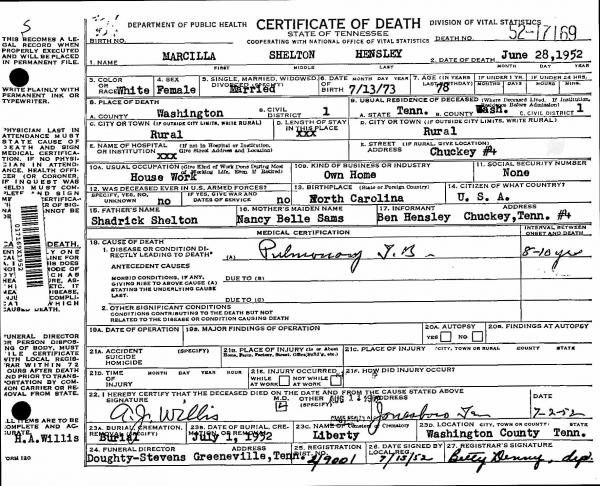 S
DEPARTMENT OF PUBLIC HEALTH CERTIFICATE OF DEATH DIVISION OF VITAL STATISTICS
STATE OF TENNESSEE
BIRTH NO. COOPERATING WITH NATIONAL OFFICE OF VITAL STATISTICS DEATH NO. 52-17169
THIS BECOMES A LE-
GAL RECORD WHEN
PROPERLY EXECUTED
AND WILL BE PLACED
IN PERMANENT FILE.
1. NAME MARCILLA SHELTON HENSLEY 2. DATE OF DEATH June 28,1952
FIRST MIDDLE LAST MONTH DAY YEAR
WRITE PLAINLY WITH
PERMANENT INK OR
TYPEWRITER.
3. COLOR OR RACE White 4. SEX Female 5. SINGLE, MARRIED, WIDOWED, DIVORCED (SPECIFY) Married 6. DATE OF BIRTH MONTH DAY YEAR 7/13/73 7. AGE (IN YEARS LAST BIRTHDAY) 78 IF UNDER 1 YR. MONTHS DAYS IF UNDER 24 HRS. HOURS MIN.
8. PLACE OF DEATH
A. COUNTY Washington B. CIVIL DISTRICT 1
9. USUAL RESIDENCE OF DECEASED (Where Deceased Lived. If Institution, Residence Before Admission)
A. STATE Tenn. B. COUNTY Wash. C. CIVIL DISTRICT 1
C. CITY OR TOWN (IF OUTSIDE CITY LIMITS, WRITE RURAL) Rural D. LENGTH OF STAY IN THIS PLACE xxx
D. CITY OR TOWN (IF OUTSIDE CITY LIMITS, WRITE RURAL) Rural
E. NAME OF HOSPITAL OR INSTITUTION (If not in Hospital or Institution, Give Street Address or Location) xxx
E. STREET ADDRESS (IF RURAL, GIVE LOCATION) Chuckey #4
10A. USUAL OCCUPATION (Give Kind of Work Done During Most of Working Life, Even If Retired) House Work
10B. KIND OF BUSINESS OR INDUSTRY Own Home
11. SOCIAL SECURITY NUMBER None
12. WAS DECEASED EVER IN U.S. ARMED FORCES?
SPECIFY, YES, NO, UNKNOWN no IF YES, GIVE WAR AND DATES OF SERVICE no
13. BIRTHPLACE (State or Foreign Country) North Carolina
14. CITIZEN OF WHAT COUNTRY? U. S. A.
15. FATHER'S NAME Shadrick Shelton
16. MOTHER'S MAIDEN NAME Nancy Belle Sams
17. INFORMANT Ben Hensley ADDRESS Chuckey,Tenn. #4
MEDICAL CERTIFICATION
INTERVAL BETWEEN ONSET AND DEATH
18. CAUSE OF DEATH
1. DISEASE OR CONDITION DIRECTLY LEADING TO DEATH* (A) Pulmonary T.B. 8-10 yrs
ANTECEDENT CAUSES
MORBID CONDITIONS, IF ANY, GIVING RISE TO ABOVE CAUSE (A) STATING THE UNDERLYING CAUSE LAST.
DUE TO (B)
DUE TO (C)
2. OTHER SIGNIFICANT CONDITIONS
CONDITIONS CONTRIBUTING TO THE DEATH BUT NOT
RELATED TO THE DISEASE OR CONDITION CAUSING DEATH
19A. DATE OF OPERATION 19B. MAJOR FINDINGS OF OPERATION 20A. AUTOPSY YES NO 20B. FINDINGS AT AUTOPSY
21A. ACCIDENT SUICIDE HOMICIDE (SPECIFY) 21B. PLACE OF INJURY 21C. PLACE OF INJURY (CITY, TOWN OR RURAL) COUNTY STATE
21D. TIME OF INJURY MONTH DAY YEAR HOUR 21E. INJURY OCCURRED WHILE AT WORK NOT WHILE AT WORK 21F. HOW DID INJURY OCCUR?
22. I HEREBY CERTIFY THAT THE DECEASED DIED ON THE DATE AND FROM THE CAUSE STATED ABOVE
SIGNATURE A.J. Willis M.D. OTHER (SPECIFY) ADDRESS Jonesboro Ten 7-2-52
23A. BURIAL, CREMATION, REMOVAL (SPECIFY) Burial 23B. DATE OF BURIAL, CREMATION OR REMOVAL July 1, 1952 23C. NAME OF Liberty 23D. LOCATION (CITY, TOWN OR COUNTY) STATE Washington County Tenn.
24. FUNERAL DIRECTOR ADDRESS Doughty-Stevens Greeneville,Tenn. 25. REGISTRATION DIST. NO. 26. DATE SIGNED BY LOCAL REG. 7/15/52 27. REGISTRAR'S SIGNATURE Betty Denny, dep.
H.A.Willis
FORM 120